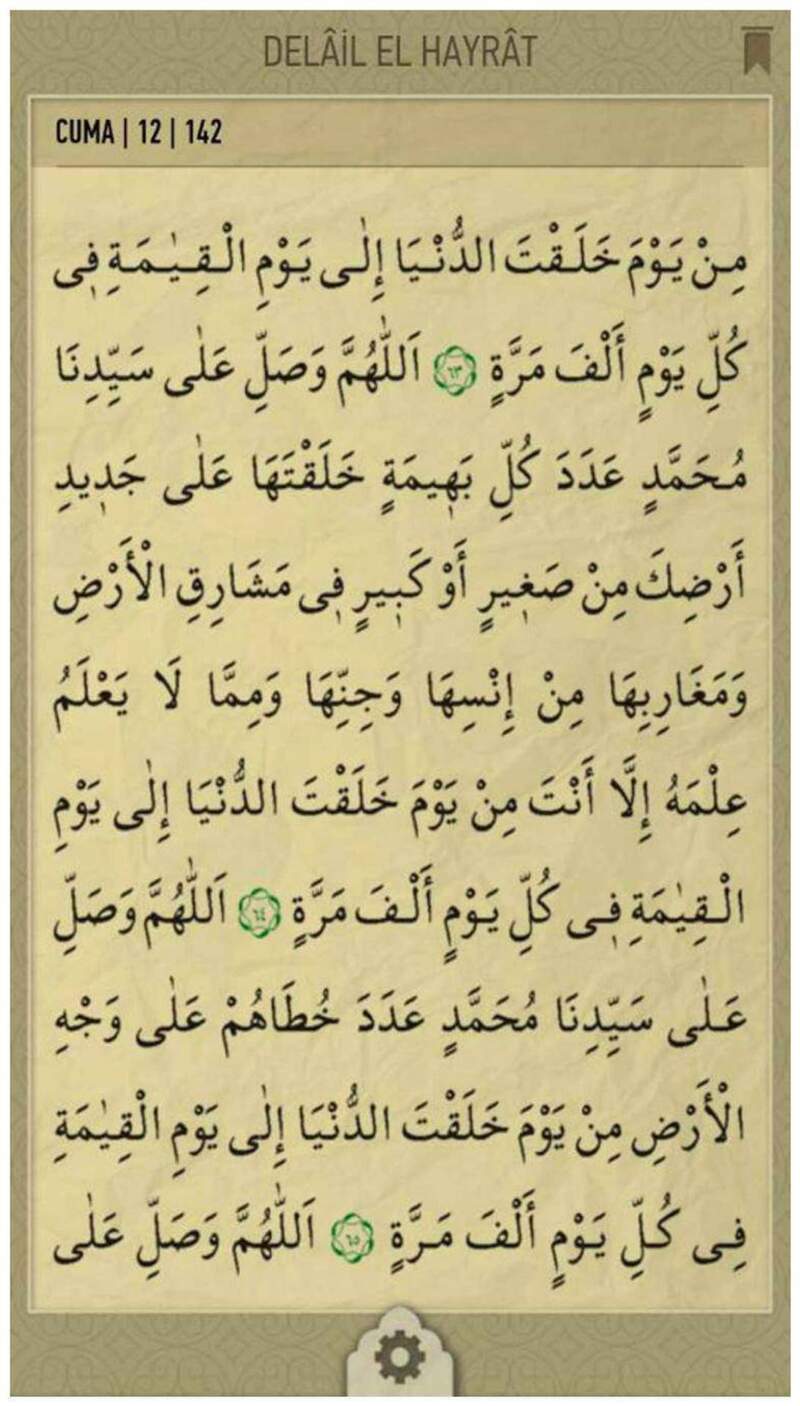 DELÂİL EL HAYRÂT
CUMA | 12 | 142
مِنْ يَوْمَ خَلَقْتَ الدُّنْيَا إِلٰى يَوْمِ الْقِيٰمَةِ فِى
كُلِّ يَوْمٍ أَلْفَ مَرَّةٍ ٦٣ اَللّٰهُمَّ وَصَلِّ عَلٰى سَيِّدِنَا
مُحَمَّدٍ عَدَدَ كُلِّ بَهِيمَةٍ خَلَقْتَهَا عَلٰى جَدِيدِ
أَرْضِكَ مِنْ صَغِيرٍ أَوْ كَبِيرٍ فِى مَشَارِقِ الْأَرْضِ
وَمَغَارِبِهَا مِنْ إِنْسِهَا وَجِنِّهَا وَمِمَّا لَا يَعْلَمُ
عِلْمَهُ إِلَّا أَنْتَ مِنْ يَوْمَ خَلَقْتَ الدُّنْيَا إِلٰى يَوْمِ
الْقِيٰمَةِ فِى كُلِّ يَوْمٍ أَلْفَ مَرَّةٍ ٦٤ اَللّٰهُمَّ وَصَلِّ
عَلٰى سَيِّدِنَا مُحَمَّدٍ عَدَدَ خُطَاهُمْ عَلٰى وَجْهِ
الْأَرْضِ مِنْ يَوْمَ خَلَقْتَ الدُّنْيَا إِلٰى يَوْمِ الْقِيٰمَةِ
فِى كُلِّ يَوْمٍ أَلْفَ مَرَّةٍ ٦٥ اَللّٰهُمَّ وَصَلِّ عَلٰى